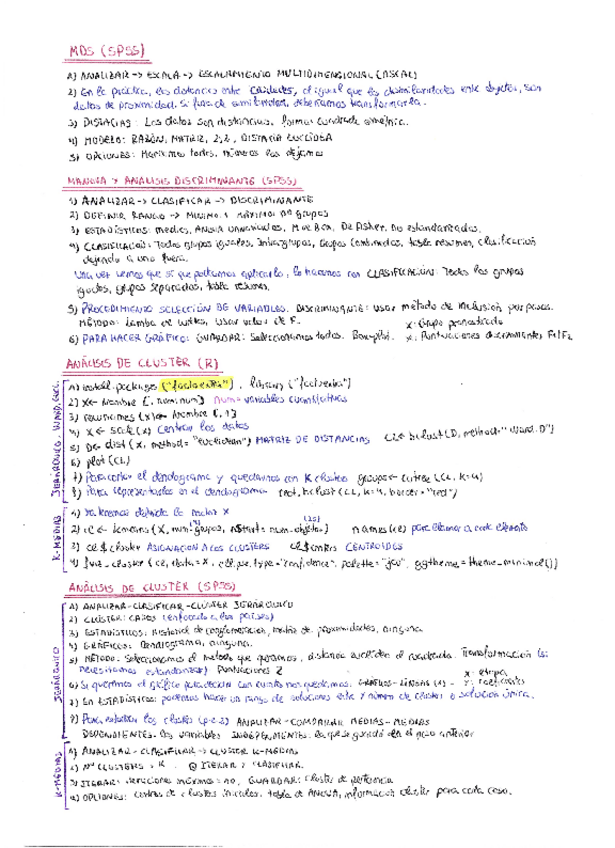 MDS (SPSS)
1) ANALIZAR -> ESCALA -> ESCALAMIENTO MULTIDIMENSIONAL (ASCAL)
2) En la práctica, las distancias entre ciudades, al igual que las disimilaridades entre objetos, son
datos de proximidad. Si fuera de similaridad, deberíamos transformarla.
3) Distacias: Los datos son distancias, forma: cuadrada simétrica.
4) MODELO: RAZÓN, MATRIZ, 2,2, DISTACIA EUCLÍDEA
5) OPCIONES: Marcamos todos, números los dejamos
MANOVA Y ANALISIS DISCRIMINANTE (SPSS)
1) ANALIZAR -> CLASIFICAR -> DISCRIMINANTE
2) DEFINIR RANGO -> MINIMO: 1 MÁXIMO: nº grupos
3) ESTADÍSTICOS: medias, ANOVA univariados, M de Box, De Fisher, No estandarizados.
4) CLASIFICACIÓN: Todos grupos iguales, Intragrupos, Grupos Combinados, tabla resumen, clasificación
dejando a uno fuera.
Una vez vemos que sí que podíamos aplicarlo, lo hacemos con CLASIFICACIÓN: Todos los grupos
iguales, grupos separados, tabla resumen.
5) PROCEDIMIENTO SELECCIÓN DE VARIABLES. DISCRIMINANTE: usar método de inclusión por pasos.
MÉTODO: Lambda de Wilks, usar valor de F.
x: Grupo pronosticado
6) PARA HACER GRÁFICO: GUARDAR: Seleccionamos todos. Box-plot.
y: Puntuaciones discriminantes F1/F2
ANÁLISIS DE CLUSTER (R)
JERÁRQUICO - WARD, EUCL.
1) install.packages ("factoextra"), library ("factoextra")
2) X<- Nombre [, num:num] num= variables cuantitativas
3) rownames (X)<- Nombre [, 1]
4) X <- scale(X) Centrar los datos
5) D<- dist (X, method= "euclidean") MATRIZ DE DISTANCIAS CL<- hclust (D, method= "Ward.D")
6) plot (CL)
7) Para cortar el dendograma y quedarnos con K clusters groups<- cutree (CL, k=4)
8) Para representarlos en el dendograma rect.hclust (CL, k=4, border="red")
K-MEDIAS
1) Ya tenemos definida la matriz X
2) cl <- kmeans (X, num. grupos, nstart= num.objetos) names(cl) para llamar a cada elemento
3) cl$cluster ASIGNACION A LOS CLUSTERS cl$centers CENTROIDES
4) fviz_cluster (cl, data= X, ellipse.type= "confidence", palette= "jco", ggtheme= theme_minimal())
ANÁLISIS DE CLUSTER (SPSS)
JERÁRQUICO
1) ANALIZAR-CLASIFICAR-CLUSTER JERÁRQUICO
2) CLUSTER: CASOS (enfocado a los países)
3) ESTADÍSTICOS: Historial de conglomeración, matriz de proximidades, ninguna
4) GRÁFICOS: Dendograma, ninguna.
5) MÉTODO: Seleccionamos el método que queramos, distancia euclídea al cuadrado. Transformación (si
necesitamos estandarizar) Puntuaciones Z
x: etapa
6) Si queremos el gráfico para decidir con cuántos nos quedamos: GRÁFICOS-LINEAS
y: coeficientes
7) En ESTADÍSTICOS: podemos hacer un rango de soluciones entre X número de cluster o solución única.
8) Para estudiar los clusters ANALIZAR-COMPARAR MEDIAS-MEDIAS
DEPENDIENTES: las variables INDEPENDIENTES: la que se guardó en el paso anterior
K-MEDIAS
1) ANALIZAR-CLASIFICAR -> CLUSTER K-MEDIAS
2) Nº CLUSTERS = K ITERAR Y CLASIFICAR.
3) ITERAR: iteraciones máximas = 10, GUARDAR: Cluster de pertenencia
4) OPCIONES: centros de clusters iniciales, tabla de ANOVA, información cluster para cada caso.